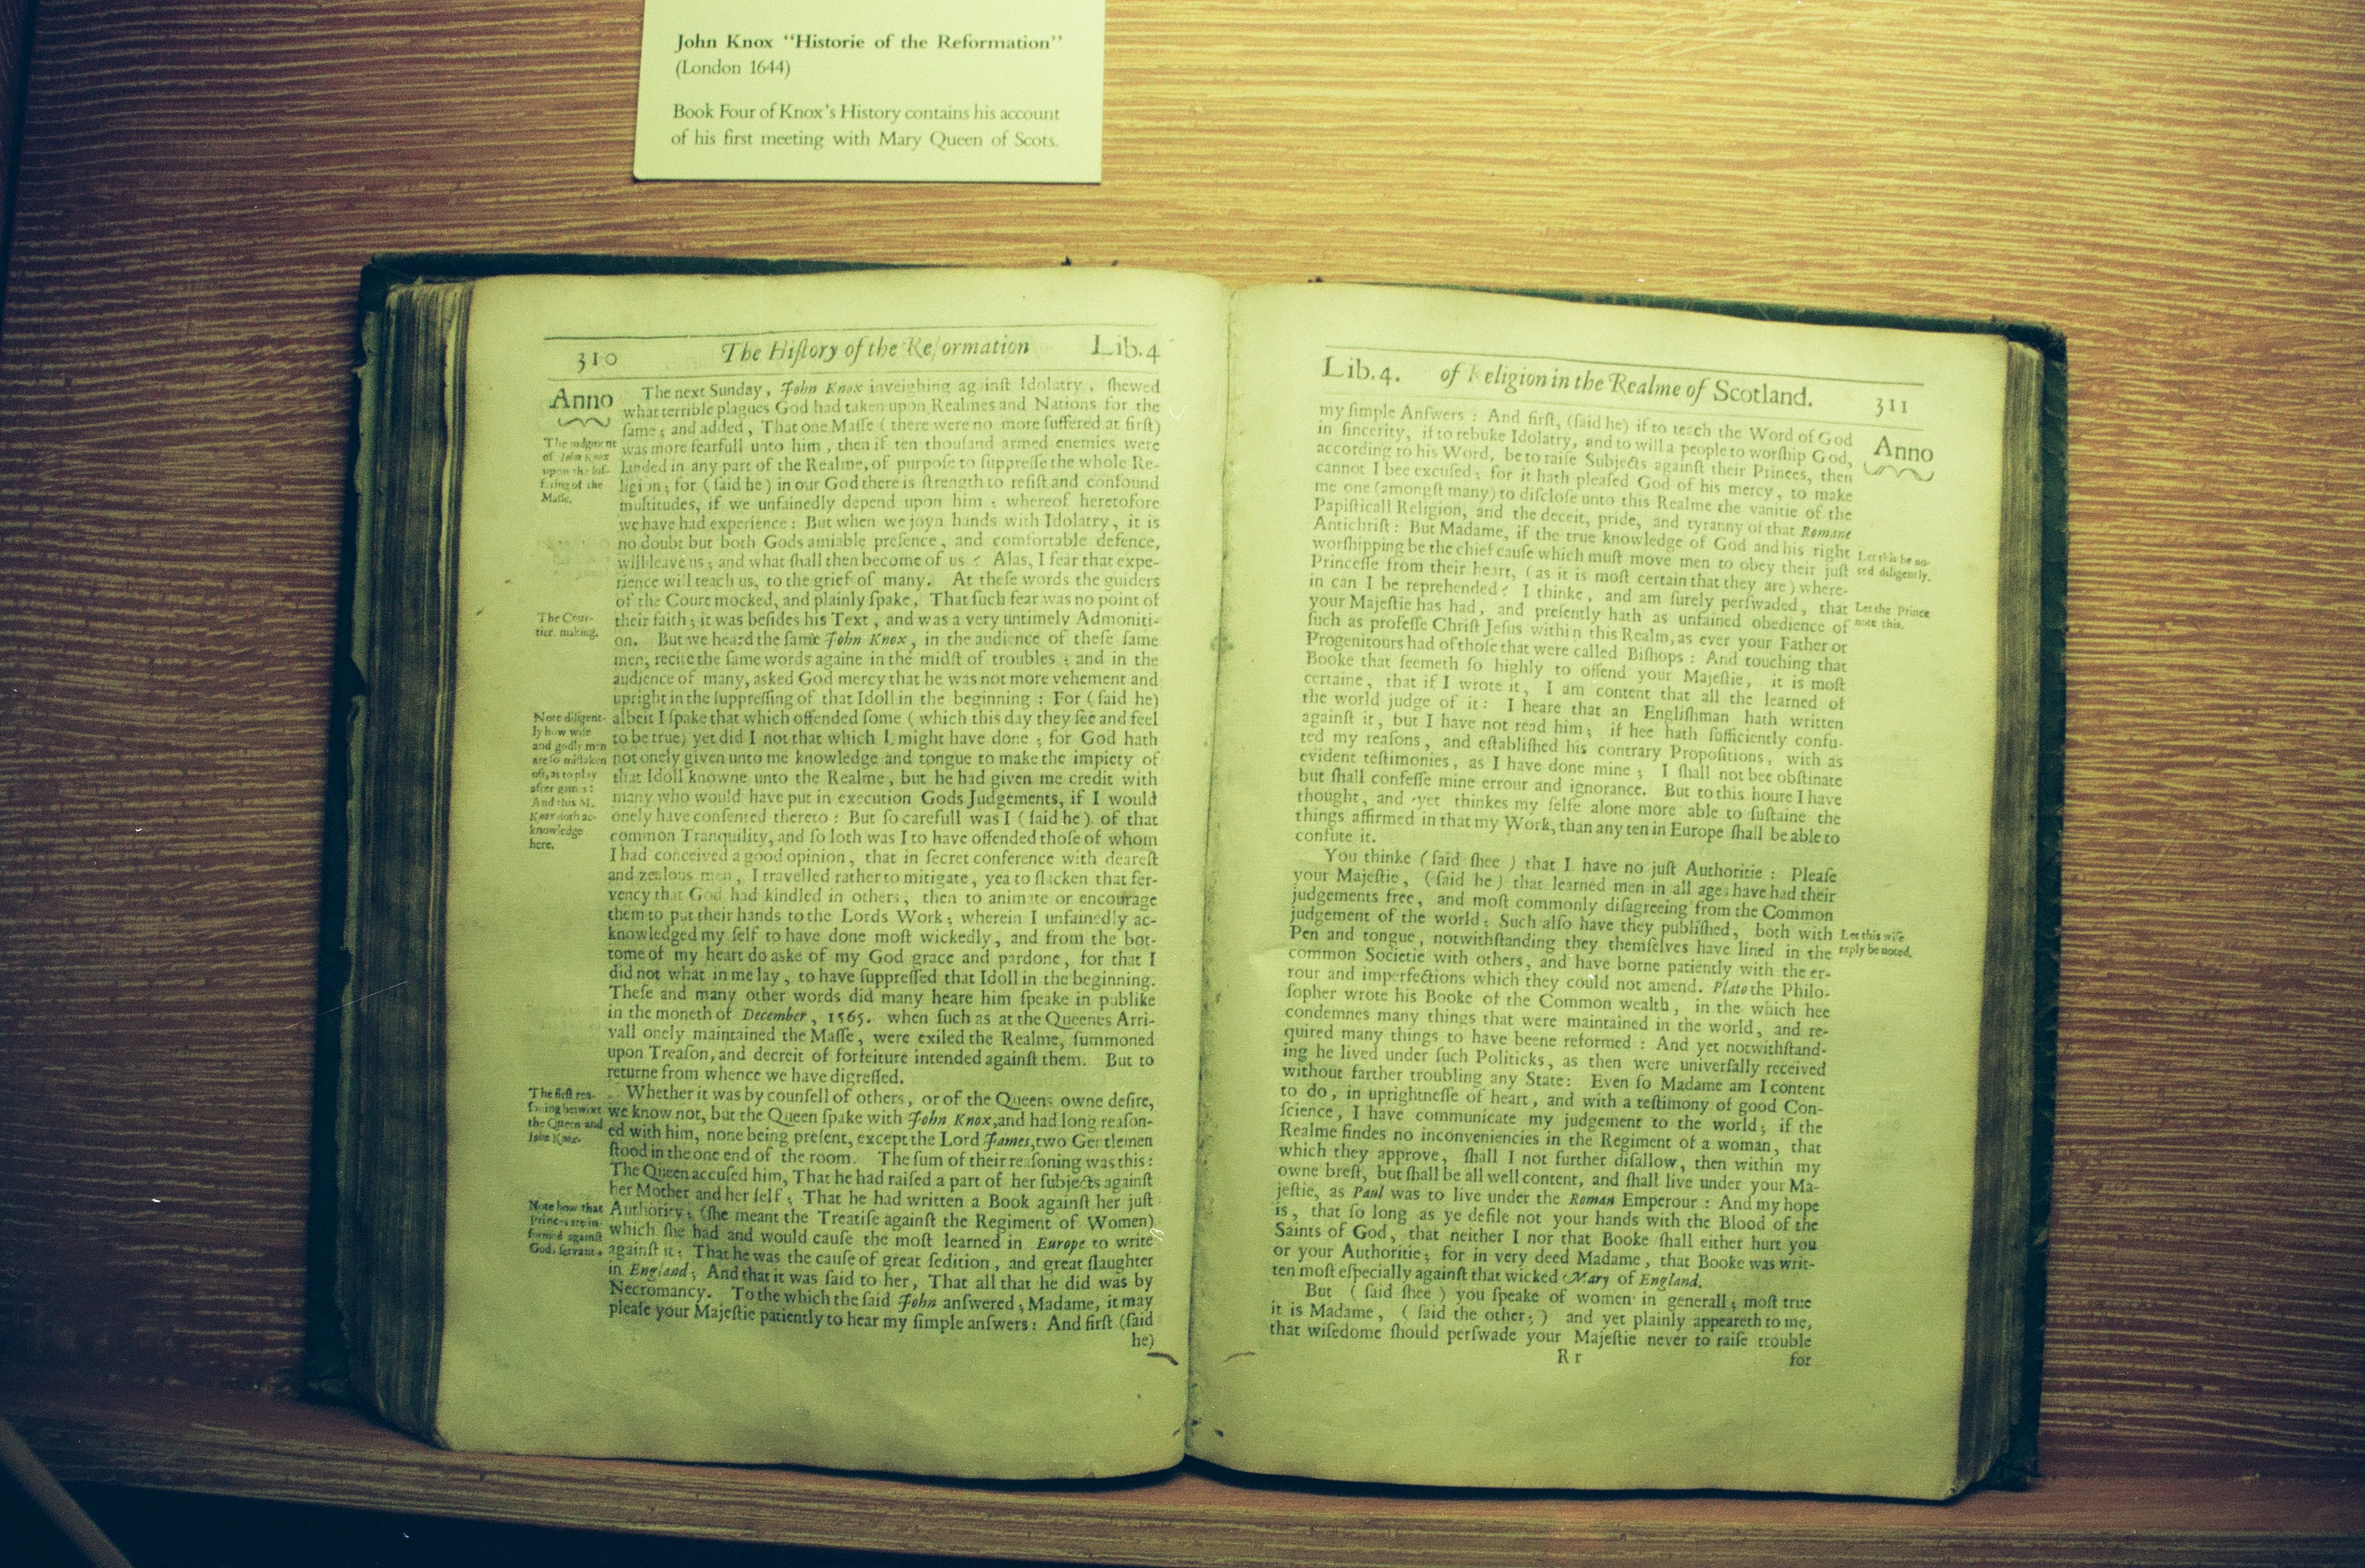 John Knox “Historie of the Reformation”
(London 1644)
Book Four of Knox’s History contains his account
of his first meeting with Mary Queen of Scots.
310 The Hiſtory of the Reformation Lib.4
Anno
The next Sunday, John Knox inveighing againſt Idolatry, ſhewed
what terrible plagues God had taken upon Realmes and Nations for the
ſame; and added, That one Maſſe (there were no more ſuffered at firſt)
was more fearfull unto him, then if ten thouſand armed enemies were
landed in any part of the Realme, of purpoſe to ſuppreſſe the whole Re-
ligion; for (ſaid he) in our God there is ſtrength to reſiſt and confound
multitudes, if we unfainedly depend upon him; whereof heretofore
we have had experience: But when we joyn hands with Idolatry, it is
no doubt but both Gods amiable preſence, and comfortable defence,
will leave us; and what ſhall then become of us? Alas, I fear that expe-
rience will teach us, to the grief of many. At theſe words the guiders
of the Court mocked, and plainly ſpake, That ſuch fear was no point of
their faith; it was beſides his Text, and was a very untimely Admoniti-
on. But we heard the ſame John Knox, in the audience of theſe ſame
men, recite the ſame words againe in the midſt of troubles; and in the
audience of many, asked God mercy that he was not more vehement and
upright in the ſuppreſſing of that Idoll in the beginning: For (ſaid he)
albeit I ſpake that which offended ſome (which this day they ſee and feel
to be true) yet did I not that which I might have done; for God hath
not onely given unto me knowledge and tongue to make the impiety of
that Idoll knowne unto the Realme, but he had given me credit with
many who would have put in execution Gods Judgements, if I would
onely have conſented thereto: But ſo carefull was I (ſaid he) of that
common Tranquility, and ſo loth was I to have offended thoſe of whom
I had conceived a good opinion, that in ſecret conference with deareſt
and zealous men, I travelled rather to mitigate, yea to ſlacken that fer-
vency that God had kindled in others, then to animate or encourage
them to put their hands to the Lords Work; wherein I unfainedly ac-
knowledged my ſelf to have done moſt wickedly, and from the bot-
tome of my heart do aske of my God grace and pardone, for that I
did not what in me lay, to have ſuppreſſed that Idoll in the beginning.
Theſe and many other words did many heare him ſpeake in publike
in the moneth of December, 1565. when ſuch as at the Queenes Arri-
vall onely maintained the Maſſe, were exiled the Realme, ſummoned
upon Treaſon, and decreit of forfeiture intended againſt them. But to
returne from whence we have digreſſed.
Whether it was by counſell of others, or of the Queens owne deſire,
we know not, but the Queen ſpake with John Knox, and had long reaſon-
ed with him, none being preſent, except the Lord James, two Gentlemen
ſtood in the one end of the room. The ſum of their reaſoning was this:
The Queen accuſed him, That he had raiſed a part of her ſubjects againſt
her Mother and her ſelf; That he had written a Book againſt her juſt
Authority; (ſhe meant the Treatiſe againſt the Regiment of Women)
which ſhe had and would cauſe the moſt learned in Europe to write
againſt it; That he was the cauſe of great ſedition, and great ſlaughter
in England; And that it was ſaid to her, That all that he did was by
Necromancy. To the which the ſaid John anſwered; Madame, it may
pleaſe your Majeſtie patiently to hear my ſimple anſwers: And firſt (ſaid
he)
The judgment
of John Knox
upon the ſuf-
fering of the
Maſſe.
The Cour-
tier,
Note diligent-
ly how wiſe
and godly men
are ſo miſtaken
oft, as to play
after games:
And this M.
Knox doth ac-
knowledge
here.
The firſt rea-
ſoning betwixt
the Queen and
John Knox.
Note how that
Princes are in-
formed againſt
Gods ſervants.
Lib.4. of Religion in the Realme of Scotland. 311
Anno
my ſimple Anſwers: And firſt, (ſaid he) if to teach the Word of God
in ſincerity, if to rebuke Idolatry, and to will a people to worſhip God,
according to his Word, be to raiſe Subjects againſt their Princes, then
cannot I bee excuſed; for it hath pleaſed God of his mercy, to make
me one (amongſt many) to diſcloſe unto this Realme the vanitie of the
Papiſticall Religion, and the deceit, pride, and tyranny of that Romane
Antichriſt: But Madame, if the true knowledge of God and his right
worſhipping be the chief cauſe which muſt move men to obey their juſt
Princeſſe from their heart, (as it is moſt certain that they are) where-
in can I be reprehended? I thinke, and am ſurely perſwaded, that
your Majeſtie has had, and preſently hath as unfained obedience of
ſuch as profeſſe Chriſt Jeſus within this Realm, as ever your Father or
Progenitours had of thoſe that were called Biſhops: And touching that
Booke that ſeemeth ſo highly to offend your Majeſtie, it is moſt
certaine, that if I wrote it, I am content that all the learned of
the world judge of it: I heare that an Engliſhman hath written
againſt it, but I have not read him; if hee hath ſufficiently confu-
ted my reaſons, and eſtabliſhed his contrary Propoſitions, with as
evident teſtimonies, as I have done mine; I ſhall not bee obſtinate
but ſhall confeſſe mine errour and ignorance. But to this houre I have
thought, and yet thinkes my ſelfe alone more able to ſuſtaine the
things affirmed in that my Work, than any ten in Europe ſhall be able to
confute it.
You thinke (ſaid ſhee) that I have no juſt Authoritie: Pleaſe
your Majeſtie, (ſaid he) that learned men in all ages have had their
judgements free, and moſt commonly diſagreeing from the Common
judgement of the world; Such alſo have they publiſhed, both with
Pen and tongue, notwithſtanding they themſelves have lined in the
common Societie with others, and have borne patiently with the er-
rour and imperfections which they could not amend. Plato the Philo-
ſopher wrote his Booke of the Common wealth, in the which hee
condemnes many things that were maintained in the world, and re-
quired many things to have beene reformed: And yet notwithſtand-
ing he lived under ſuch Politicks, as then were univerſally received
without farther troubling any State: Even ſo Madame am I content
to do, in uprightneſſe of heart, and with a teſtimony of good Con-
ſcience, I have communicate my judgement to the world; if the
Realme findes no inconveniencies in the Regiment of a woman, that
which they approve, ſhall I not further diſallow, then within my
owne breſt, but ſhall be all well content, and ſhall live under your Ma-
jeſtie, as Paul was to live under the Roman Emperour: And my hope
is, that ſo long as ye defile not your hands with the Blood of the
Saints of God, that neither I nor that Booke ſhall either hurt you
or your Authoritie; for in very deed Madame, that Booke was writ-
ten moſt eſpecially againſt that wicked Mary of England.
But (ſaid ſhee) you ſpeake of women in generall; moſt true
it is Madame, (ſaid the other;) and yet plainly appeareth to me,
that wiſedome ſhould perſwade your Majeſtie never to raiſe trouble
R r for
Let this be no-
ted diligently.
Let the Prince
note this.
Let this wiſe
reply be noted.